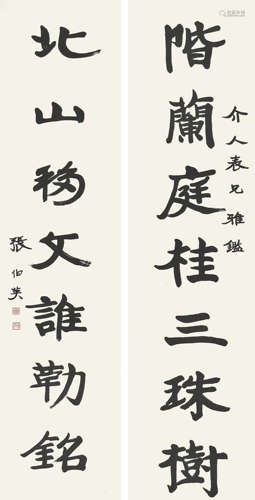 階蘭庭桂三珠樹
介人表兄雅鑑
北山移文誰勒銘
張伯英